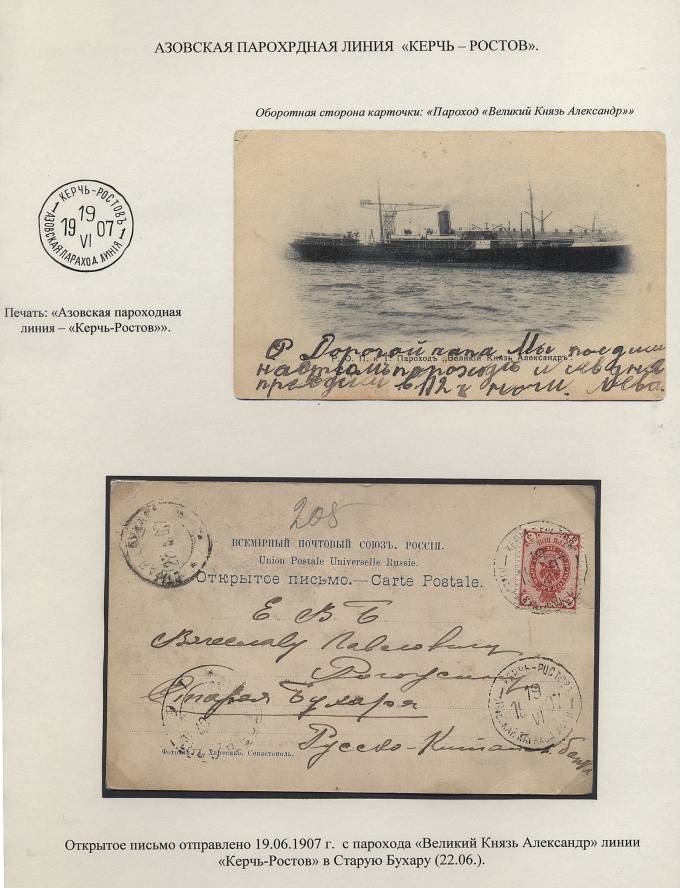 АЗОВСКАЯ ПАРОХРДНАЯ ЛИНИЯ «КЕРЧЬ – РОСТОВ».
Оборотная сторона карточки: «Пароход «Великий Князь Александр»»
КЕРЧЬ-РОСТОВЪ
19
19 VI 07
1 1
АЗОВСКАЯ ПАРАХОД. ЛИНІЯ
Печать: «Азовская пароходная
линия – «Керчь-Ростов»».
Р. О. П. и Т. Пароходъ „Великій Князь Александръ".
Дорогой папа Мы поедим
на этамъ пароходъ и
в 112 ч ночи. Лева.
208
ВСЕМІРНЫЙ ПОЧТОВЫЙ СОЮЗЪ. РОССІЯ.
Union Postale Universelle Russie.
Открытое письмо.—Carte Postale.
Е. В. Б
Вячеславу Павловичу
Старая Бухара
Русско-Китайск. банкъ
КЕРЧЬ-РОСТОВЪ
19
19 VI 07
Харченко, Севастополь.
Открытое письмо отправлено 19.06.1907 г. с парохода «Великий Князь Александр» линии
«Керчь-Ростов» в Старую Бухару (22.06.).